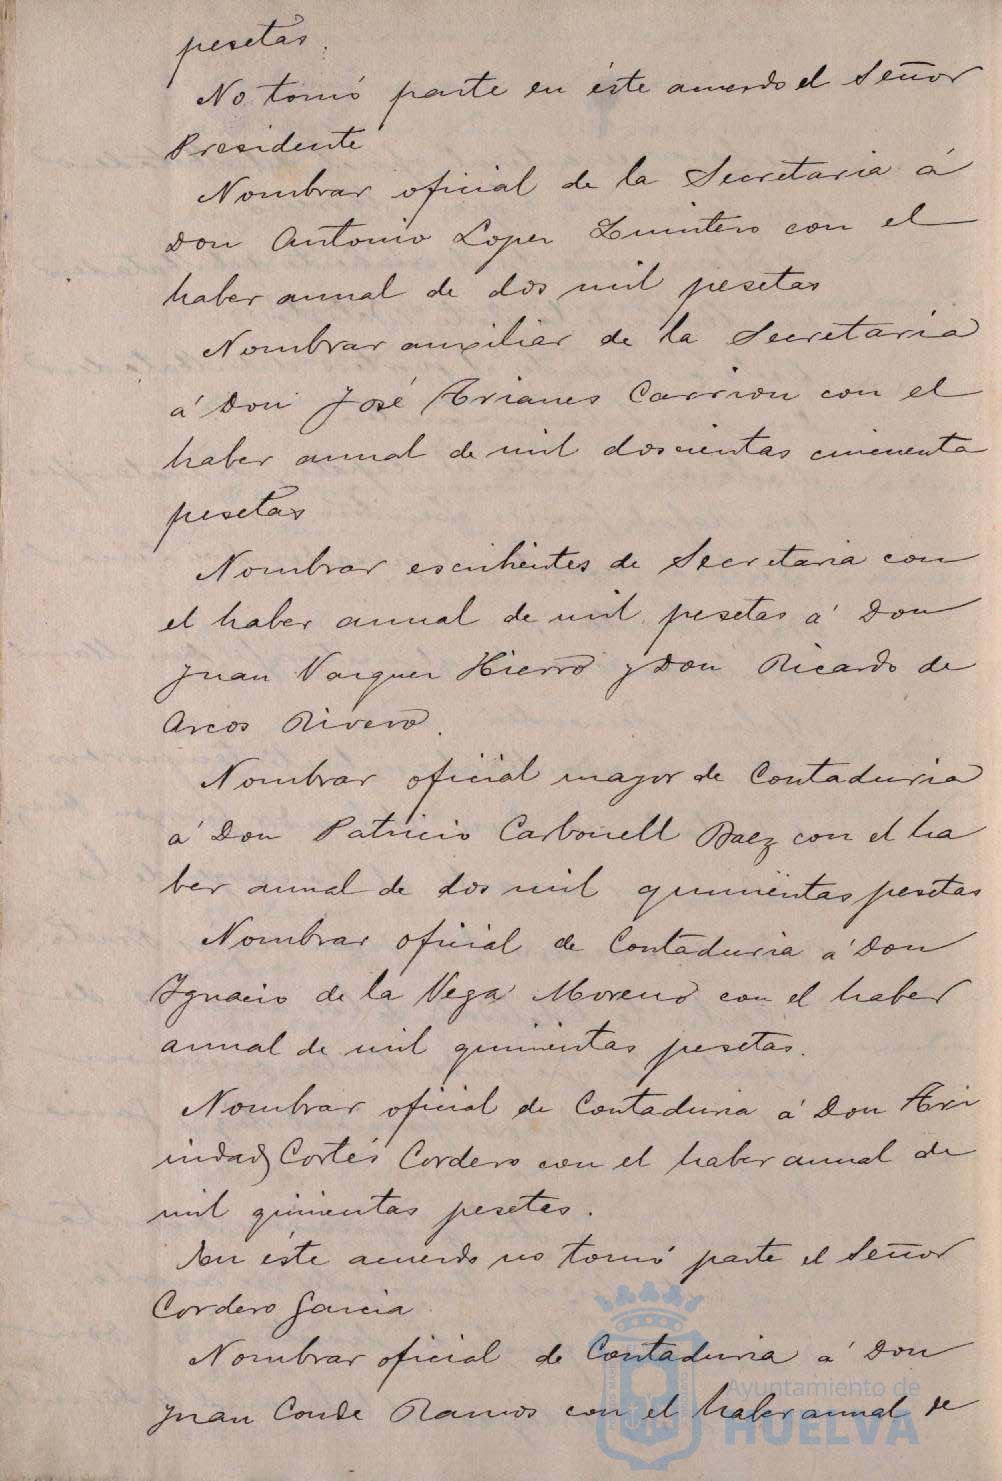 pesetas.
No tomó parte en éste acuerdo el Señor
Presidente
Nombrar oficial de la Secretaria á
Don Antonio Lopez Quintero con el
haber anual de dos mil pesetas
Nombrar auxiliar de la Secretaria
á Don José Arianes Carrion con el
haber anual de mil doscientas cincuenta
pesetas
Nombrar escribientes de Secretaria con
el haber anual de mil pesetas á Don
Juan Vazquez Hierro y Don Ricardo de
Arcos Rivero.
Nombrar oficial mayor de Contaduria
á Don Patricio Carbonell Baez con el ha
ber anual de dos mil quinientas pesetas
Nombrar oficial de Contaduria á Don
Ignacio de la Vega Moreno con el haber
anual de mil quinientas pesetas.
Nombrar oficial de Contaduria á Don Tri
nidad Cortés Cordero con el haber anual de
mil quinientas pesetas.
En éste acuerdo no tomó parte el Señor
Cordero Garcia
Nombrar oficial de Contaduria á Don
Juan Conde Ramos con el haber anual de
Ayuntamiento de
HUELVA